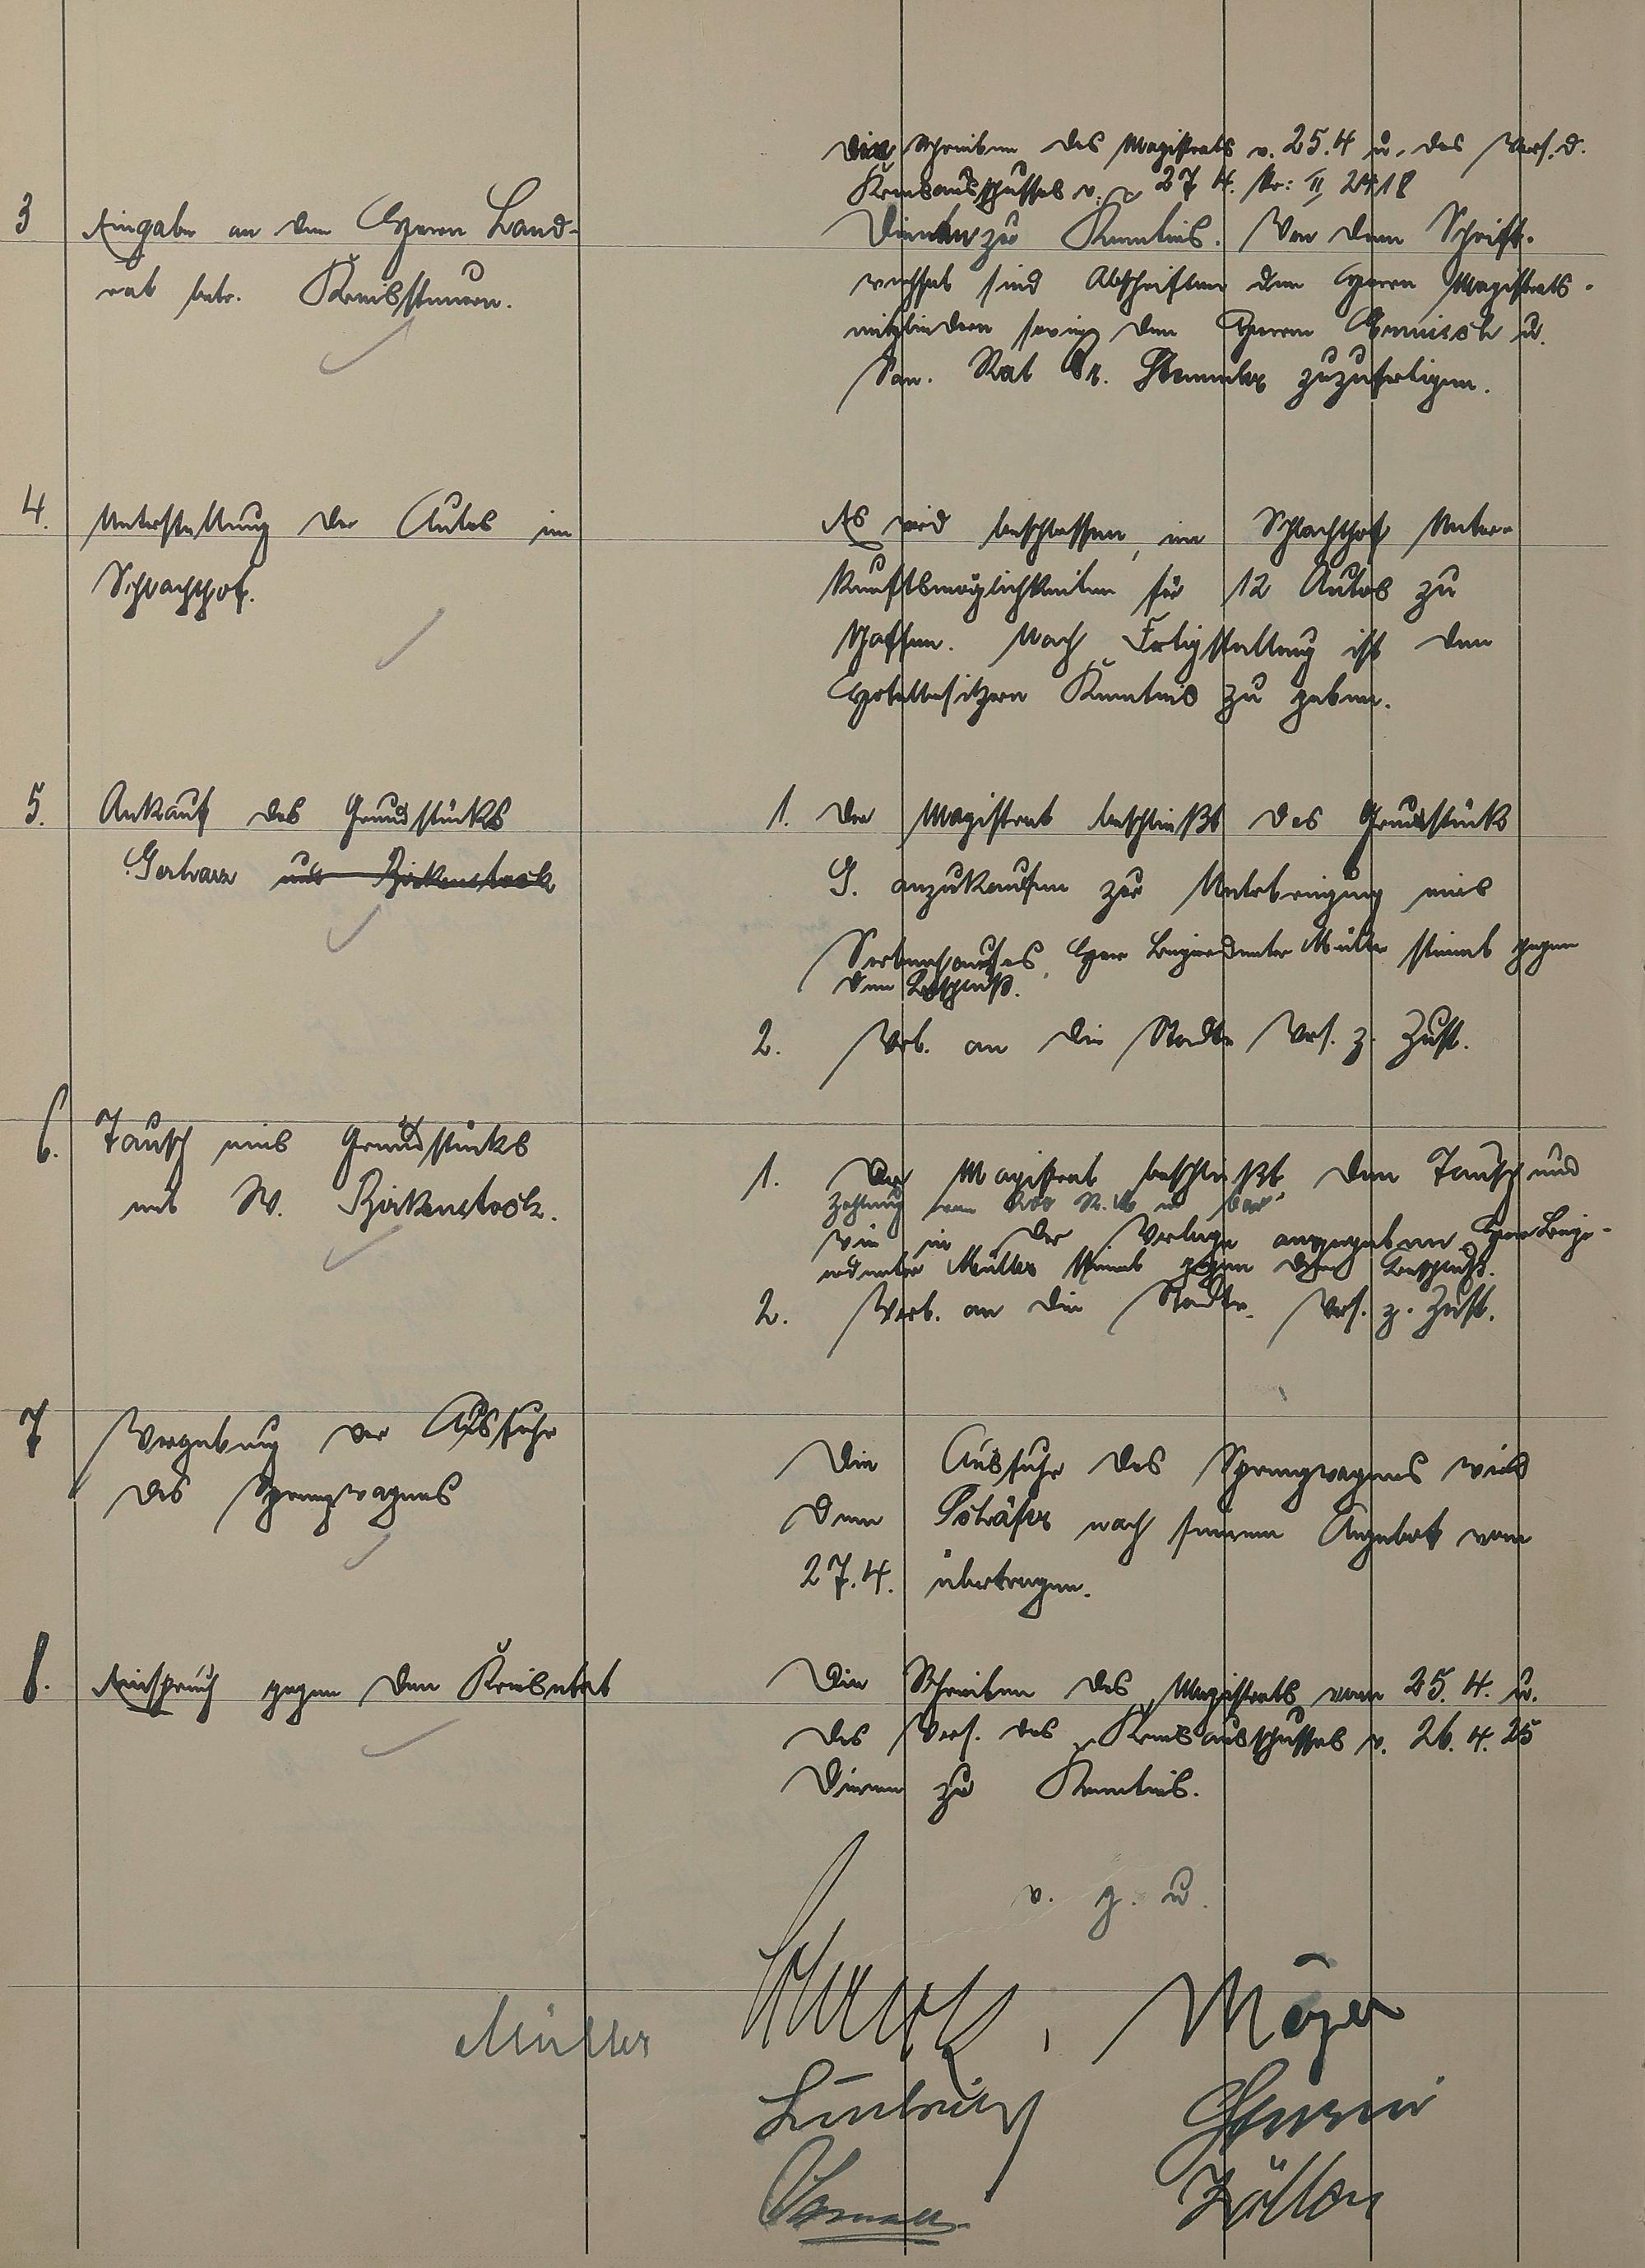 Die Schreiben des Magistrats v. 25.4 u. des Vors. d.
Kreisausschusses v. 27 4. Nr: II, 2418
3 Eingabe an den Herrn Land-
rat betr. Kreissteuern.
Dienen zu Kenntnis. Von dem Schrift-
wechsel sind Abschriften den Herren Magistrats-
mitgliedern sowie den Herren u.
San. Rat Dr. Stemmler zuzufertigen.
4. Unterstellung der Autos im
Schlachthof.
Es wird beschlossen, im Schlachthof Unter-
kunftsmöglichkeiten für 12 Autos zu
schaffen. Nach Fertigstellung ist den
Hotelbesitzern Kenntnis zu geben.
5. Ankauf des Grundstücks
Gerharz und Birkenstock
1. Der Magistrat beschließt das Grundstück
G. anzukaufen zur Unterbringung eines
Herr Beigeordneter Müller stimmt gegen
den Beschluß.
2. Vorl. an die Stadtv. Vers. z. Zust.
6. Tausch eines Grundstücks
mit W. Birkenstock.
1. Der Magistrat beschließt den Tausch und
Zahlung von R.M. in bar
wie in der Vorlage angegeben. Herr Beige-
ordneter Müller stimmt gegen den Beschluß.
2. Vorl. an die Stadtv. Vers. z. Zust.
7 Vergebung der Ausfuhr
des Sprengwagens
Die Ausfuhr des Sprengwagens wird
dem Schäfer nach seinem Angebot vom
27.4. übertragen.
8. Einspruch gegen den Kreisetat
Die Schreiben des Magistrats vom 25. 4. u.
des Vors. des Kreisausschusses v. 26. 4. 25
dienen zu Kenntnis.
v. g. u.
Müller